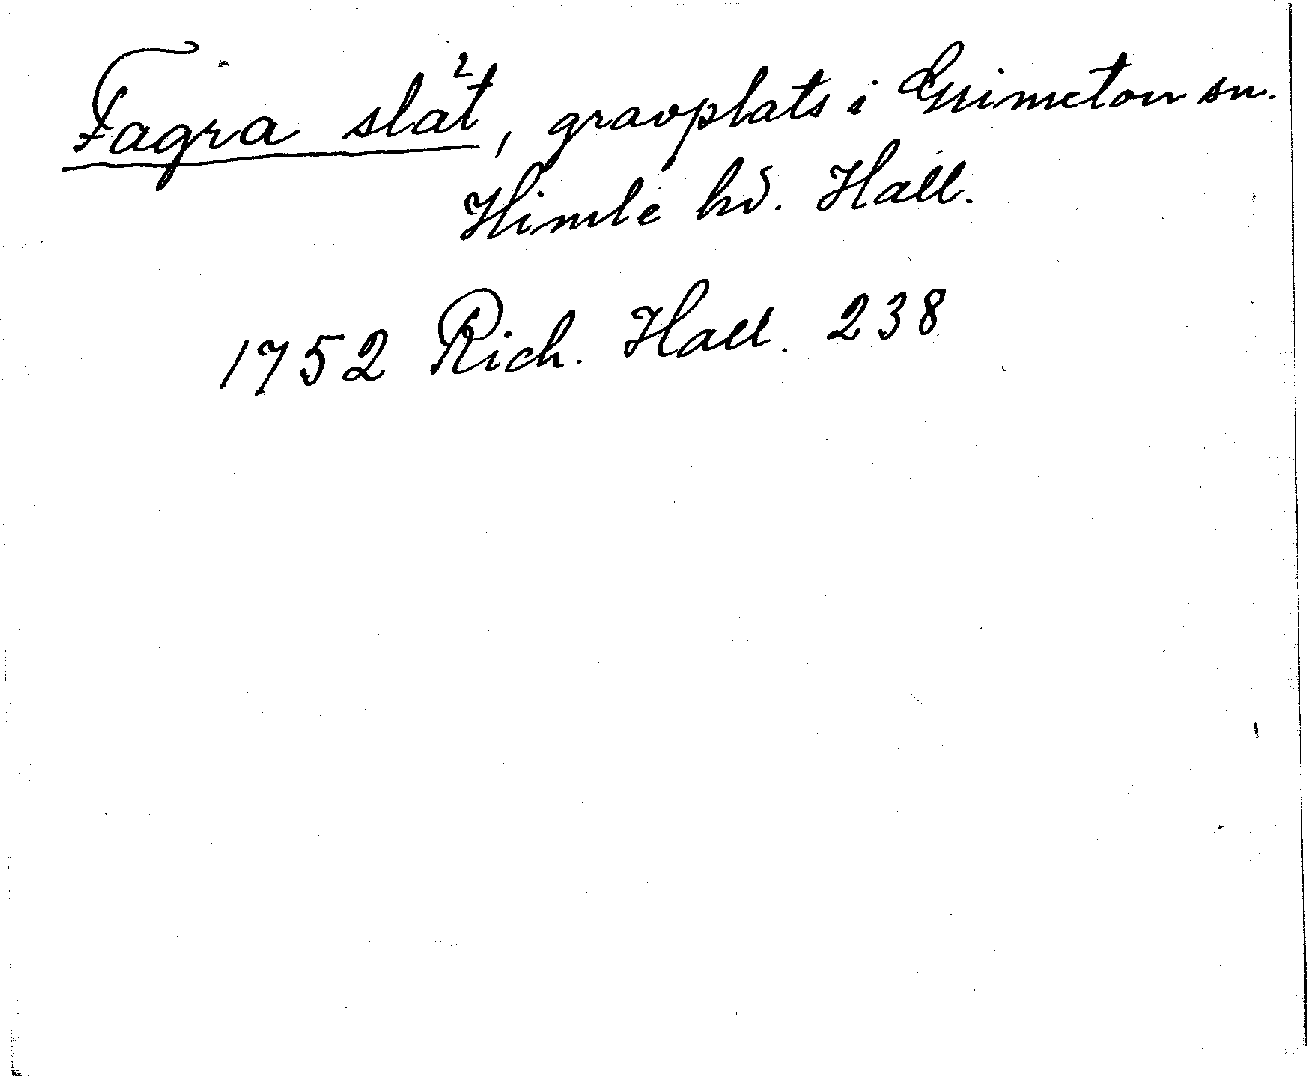 Fagra slät, gravplats i Grimeton sn.
Himle hd. Hall.
1752 Rich. Hall. 238